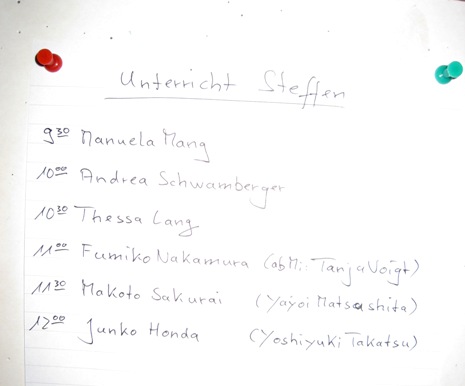 Unterricht Steffen
9³⁰ Manuela Mang
10⁰⁰ Andrea Schwamberger
10³⁰ Thessa Lang
11⁰⁰ Fumiko Nakamura (ab Mi.: Tanja Voigt)
11³⁰ Makoto Sakurai (Yayoi Matsushita)
12⁰⁰ Junko Honda (Yoshiyuki Takatsu)